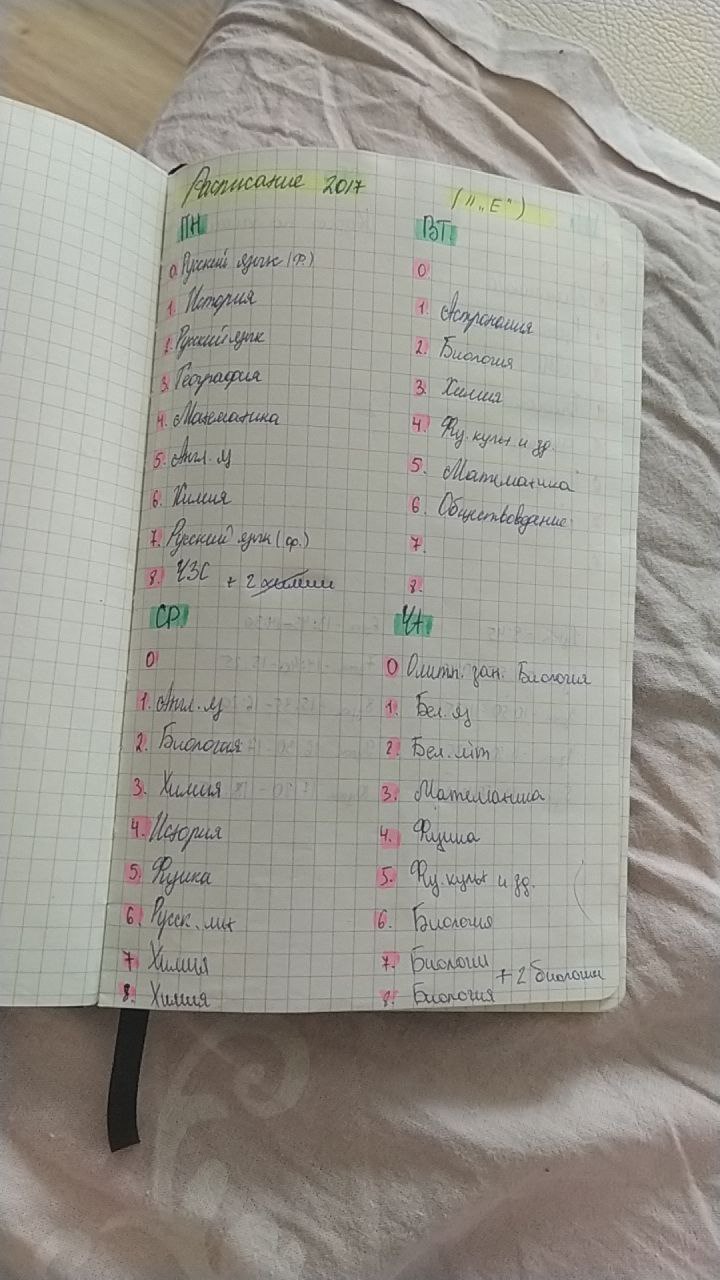 Расписание 2017 (11 „Е“)
ПН
0. Русский язык (ф.)
1. История
2. Русский язык
3. География
4. Математика
5. Англ. яз
6. Химия
7. Русский язык (ф.)
8. ЧЗС + 2 химии
ВТ.
0
1. Астрономия
2. Биология
3. Химия
4. Физ. культ и зд.
5. Математика
6. Обществоведение
7.
8.
СР.
0
1. Англ. яз
2. Биология
3. Химия
4. История
5. Физика
6. Русск. лит
7 Химия
8. Химия
Чт.
0 Олимп. зан. Биология
1. Бел. яз
2. Бел. літ
3. Математика
4. Физика
5. Физ. культ и зд.
6. Биология
7. Биологии
8. Биология + 2 биологии